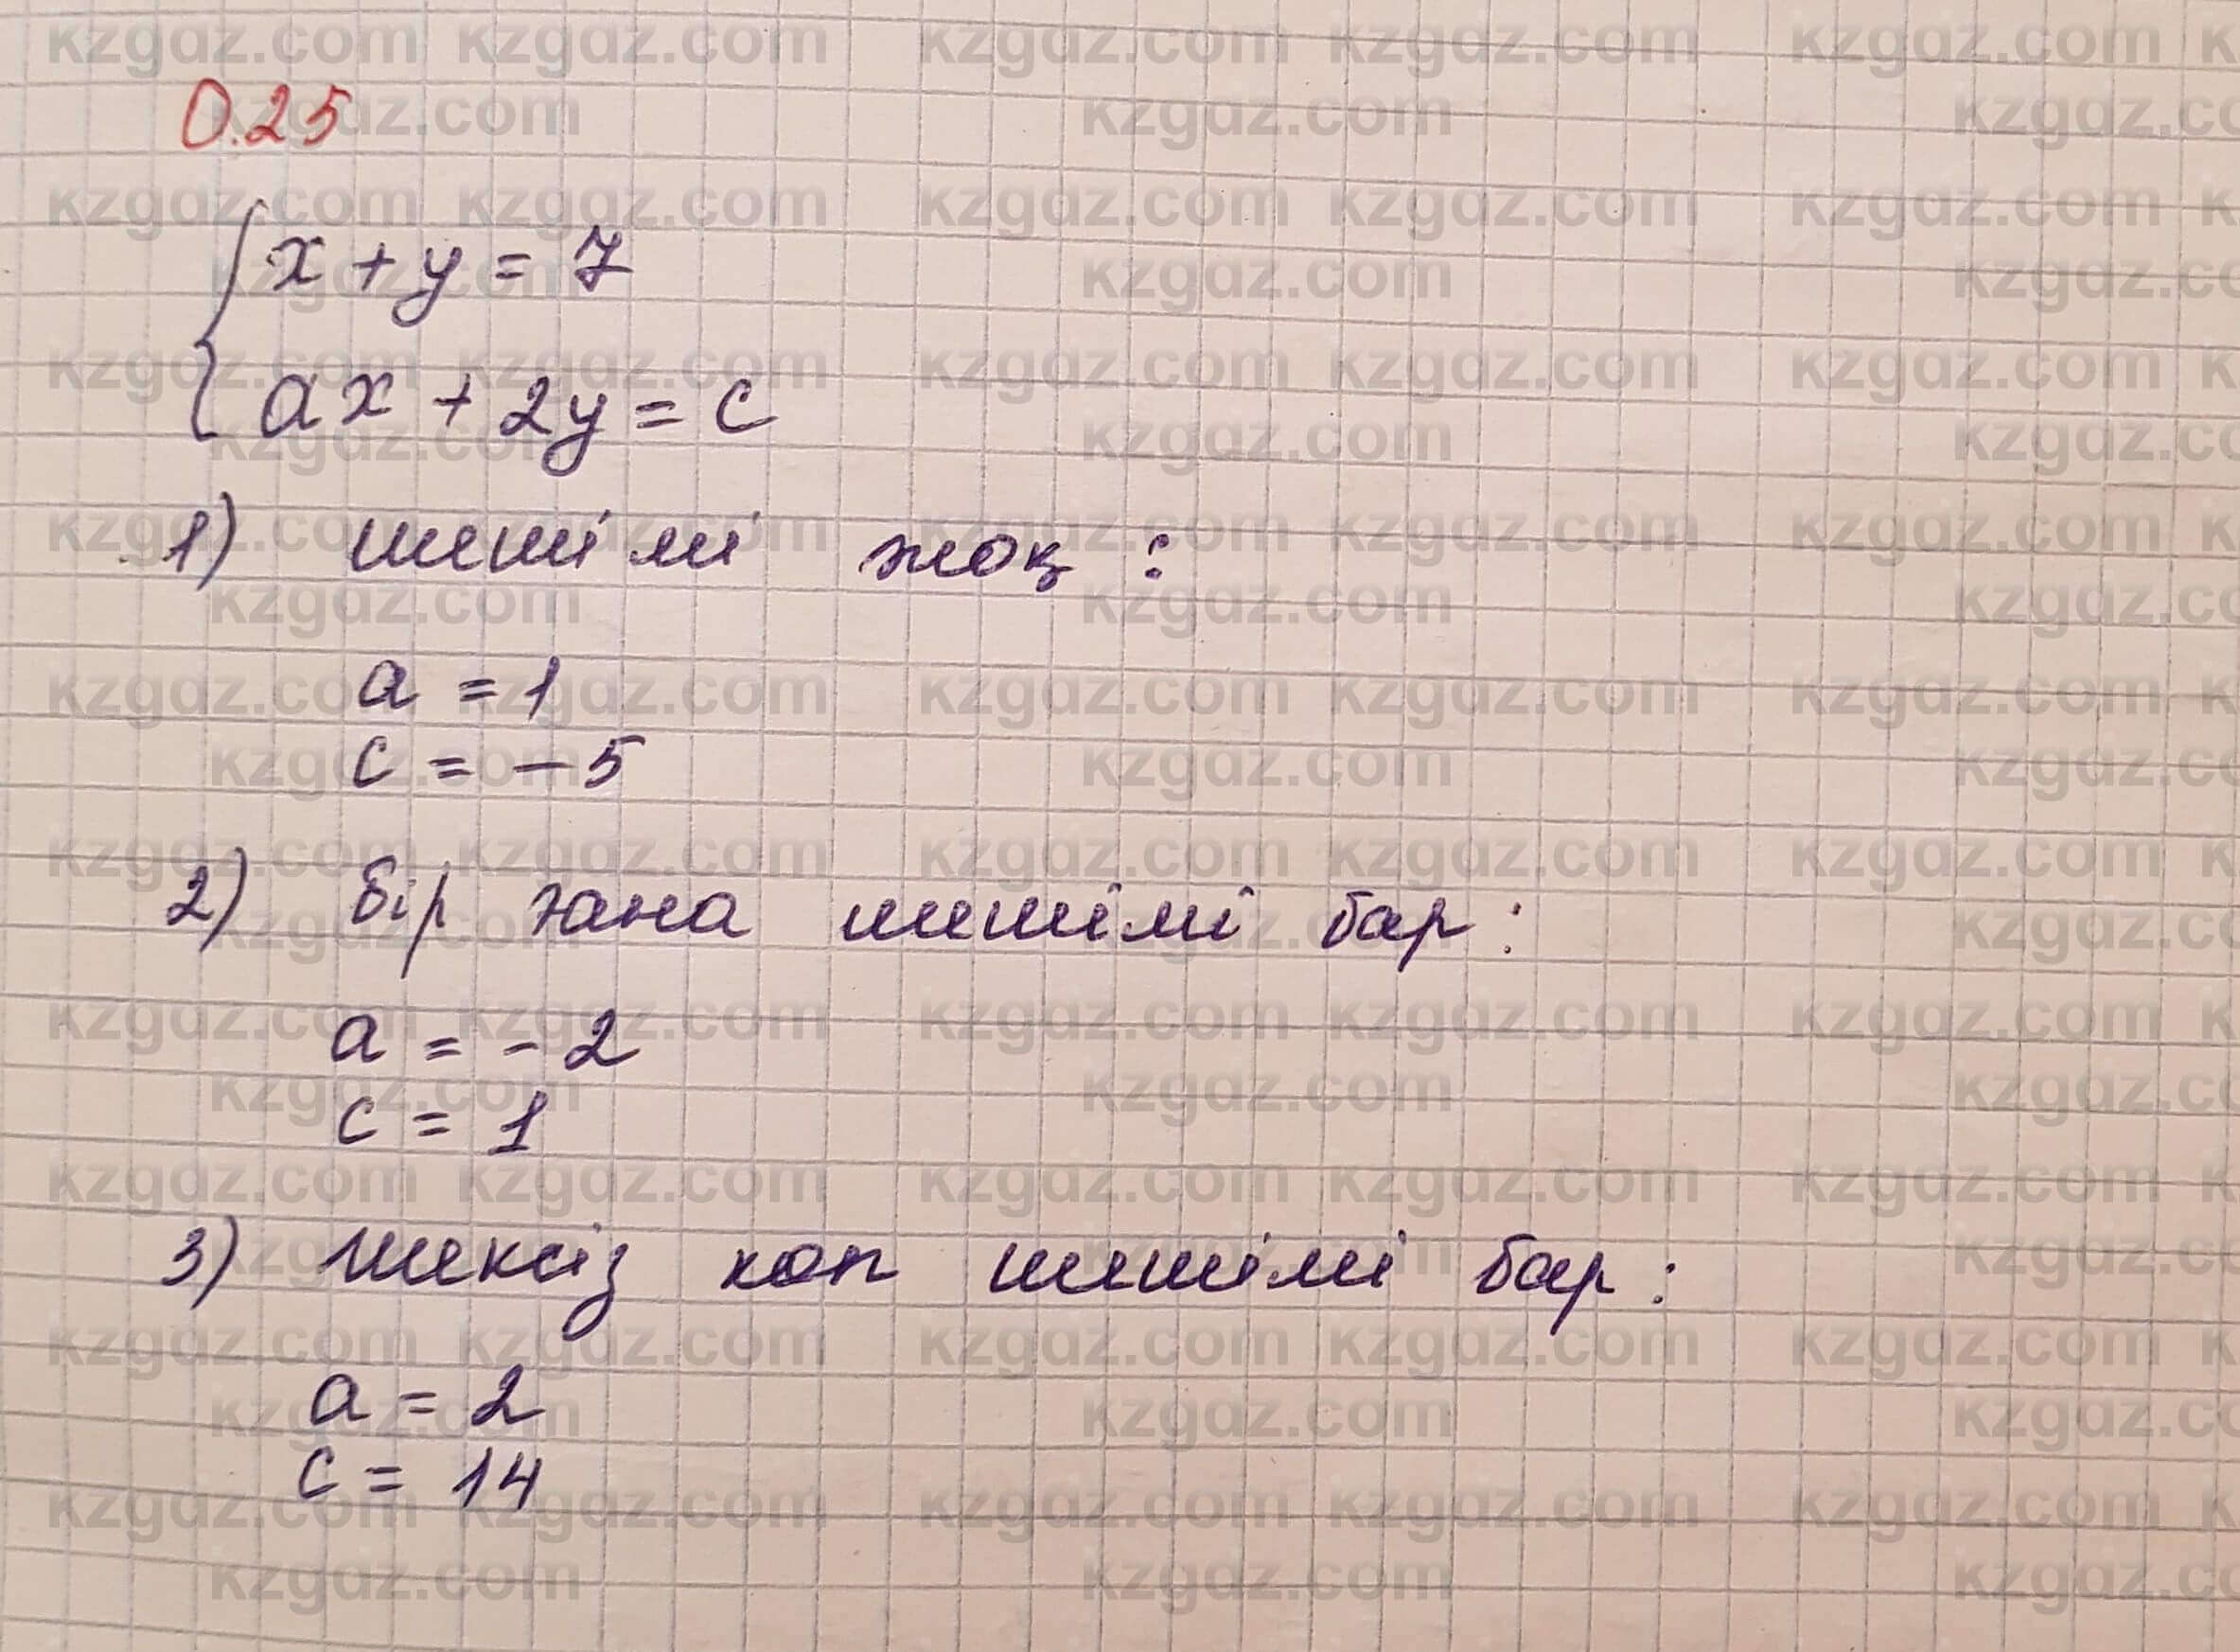 0.25
x + y = 7
ax + 2y = c
1) шешімі жоқ :
a = 1
c = - 5
2) бір ғана шешімі бар :
a = - 2
c = 1
3) шексіз көп шешімі бар :
a = 2
c = 14